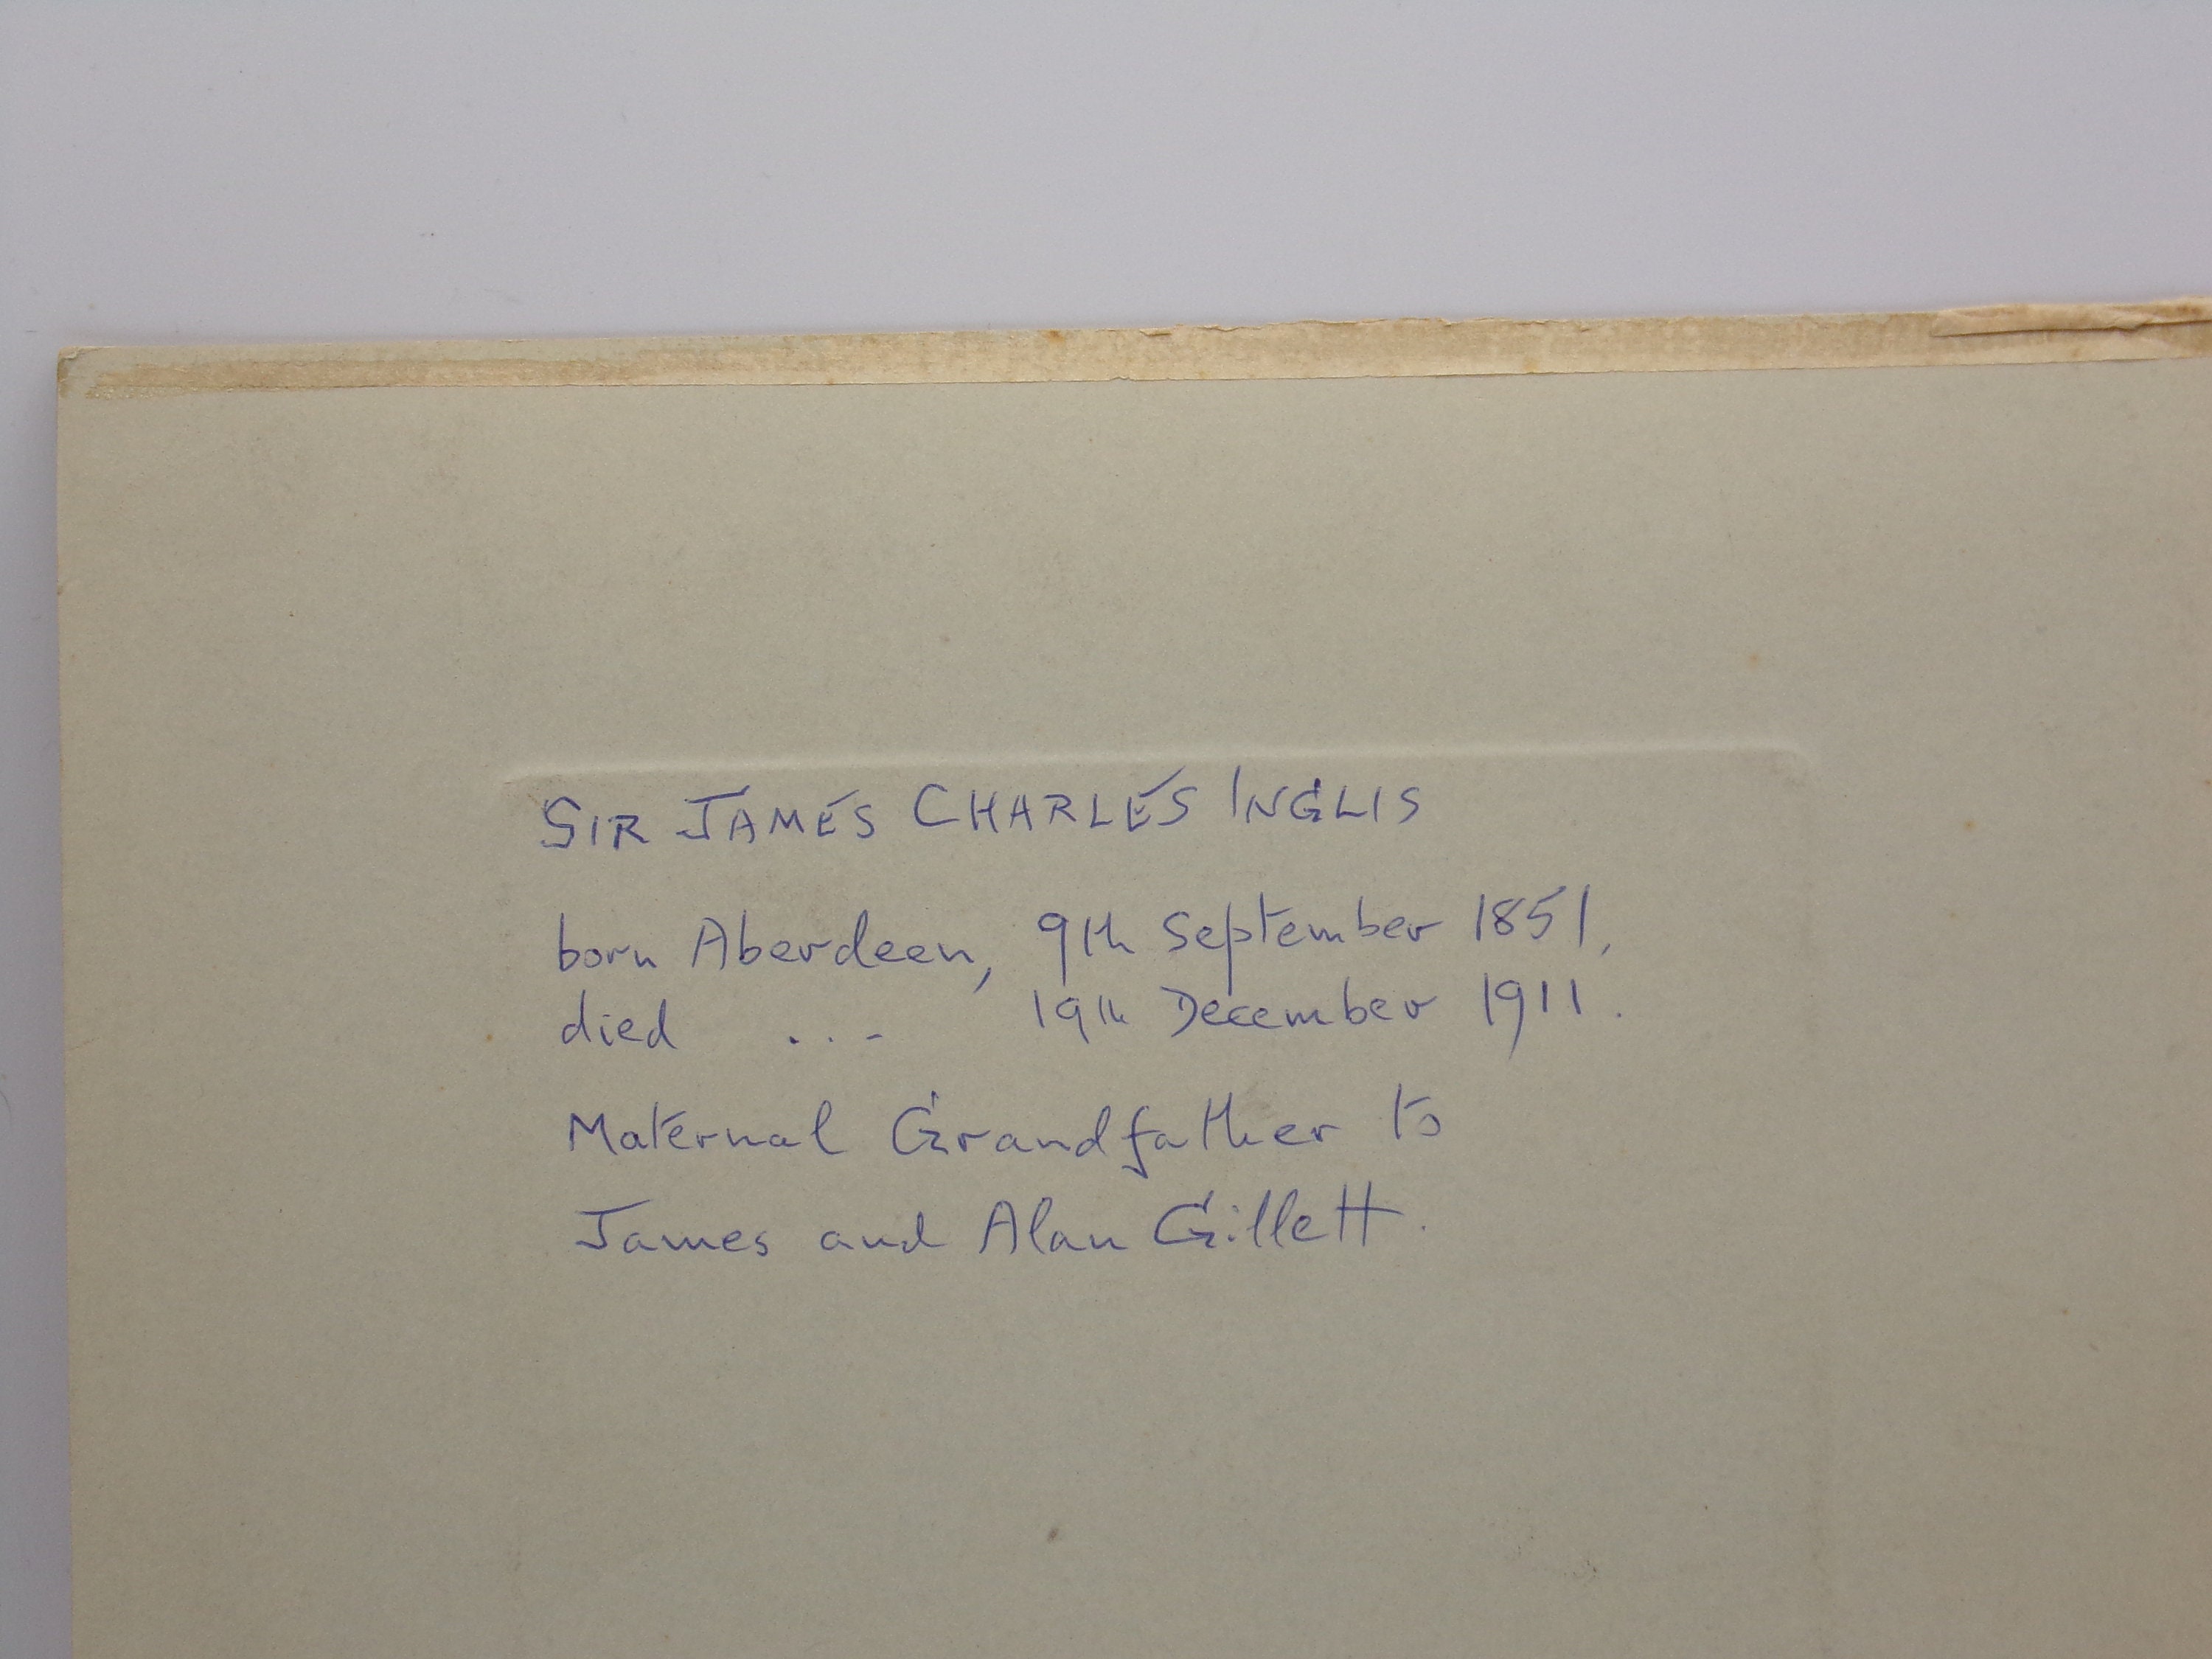 SIR JAMES CHARLES INGLIS
born Aberdeen, 9th September 1851,
died ... 19th December 1911.
Maternal Grandfather to
James and Alan Gillett.